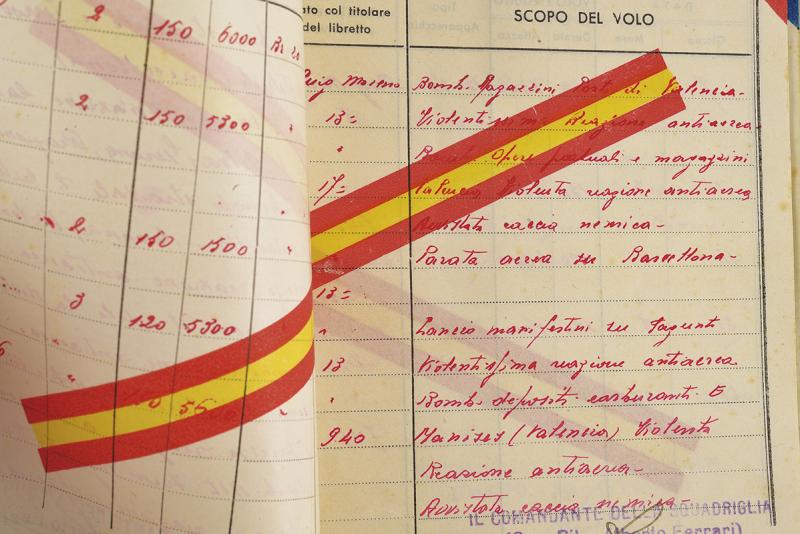 2 150 6000
2 150 5300
2 150 1500
3 120 5300
ato col titolare
del libretto
SCOPO DEL VOLO
Moreno Bomb. Magazzini Port. di Valencia-
13= Violentissima Reazione antiaerea
Opere portuali e magazzini
17= Valencia Violenta reazione antiaerea
Avvistata caccia nemica-
Parata aerea su Barcellona-
13=
Lancio manifestini su Sagunti
13 Violentissima reazione antiaerea
Bomb. depositi carburanti E
940 Manises (Valencia) Violenta
Reazione antiaerea-
Avvistata caccia nemica-
IL COMANDANTE DELLA SQUADRIGLIA
Ferrari)